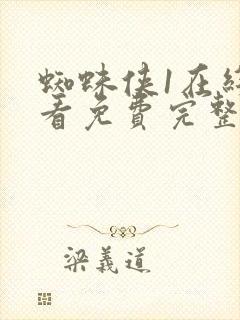 蜘蛛侠1在线
看免费完整
梁義道